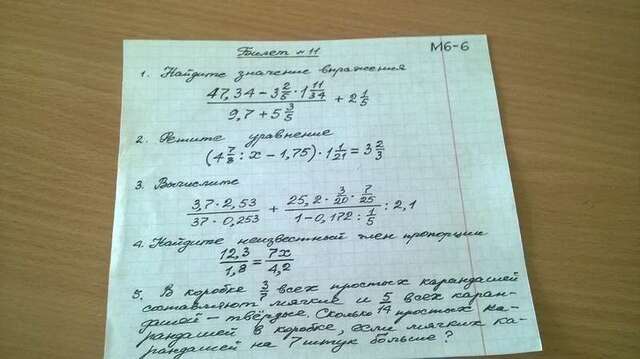 Билет №11
М6-6
1. Найдите значение выражения
(47,34 - 3 2/5 · 1 11/34) / (9,7 + 5 3/5) + 2 1/5
2. Решите уравнение
(4 7/8 : x - 1,75) · 1 1/21 = 3 2/3
3. Вычислите
(3,7 · 2,53) / (37 · 0,253) + (25,2 · 3/20 · 7/25) / (1 - 0,172 : 1/5) : 2,1
4. Найдите неизвестный член пропорции
12,3 / 1,8 = 7x / 4,2
5. В коробке 3/7 всех простых карандашей
составляют мягкие и 5/14 всех каран-
дашей - твёрдые. Сколько простых ка-
рандашей в коробке, если мягких ка-
рандашей на 7 штук больше?